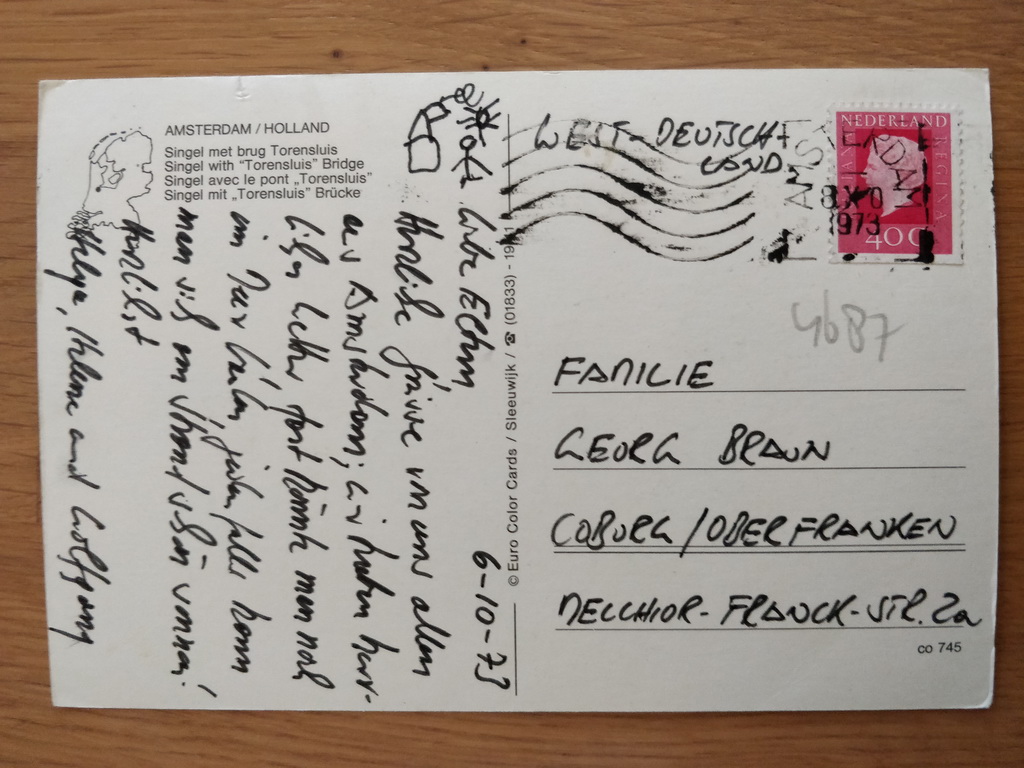 AMSTERDAM / HOLLAND
Singel met brug Torensluis
Singel with "Torensluis" Bridge
Singel avec le pont „Torensluis"
Singel mit „Torensluis" Brücke
6-10-73
Liebe Eltern,
Herzliche Grüsse von uns allen
aus Amsterdam; wir haben herr-
liches Wetter, fast könnte man noch
im Meer baden, jedenfalls kann
man sich am Strand schön sonnen!
Herzlichst
Helga, Helene und Wolfgang
© Euro Color Cards / Sleeuwijk / ☎ (01833) - 19
WEST-DEUTSCH-
LAND
NEDERLAND
REGINA
40c
AMSTERDAM
1973
4687
FAMILIE
GEORG BRAUN
COBURG/OBERFRANKEN
MELCHIOR-FRANCK-STR. 2a
co 745